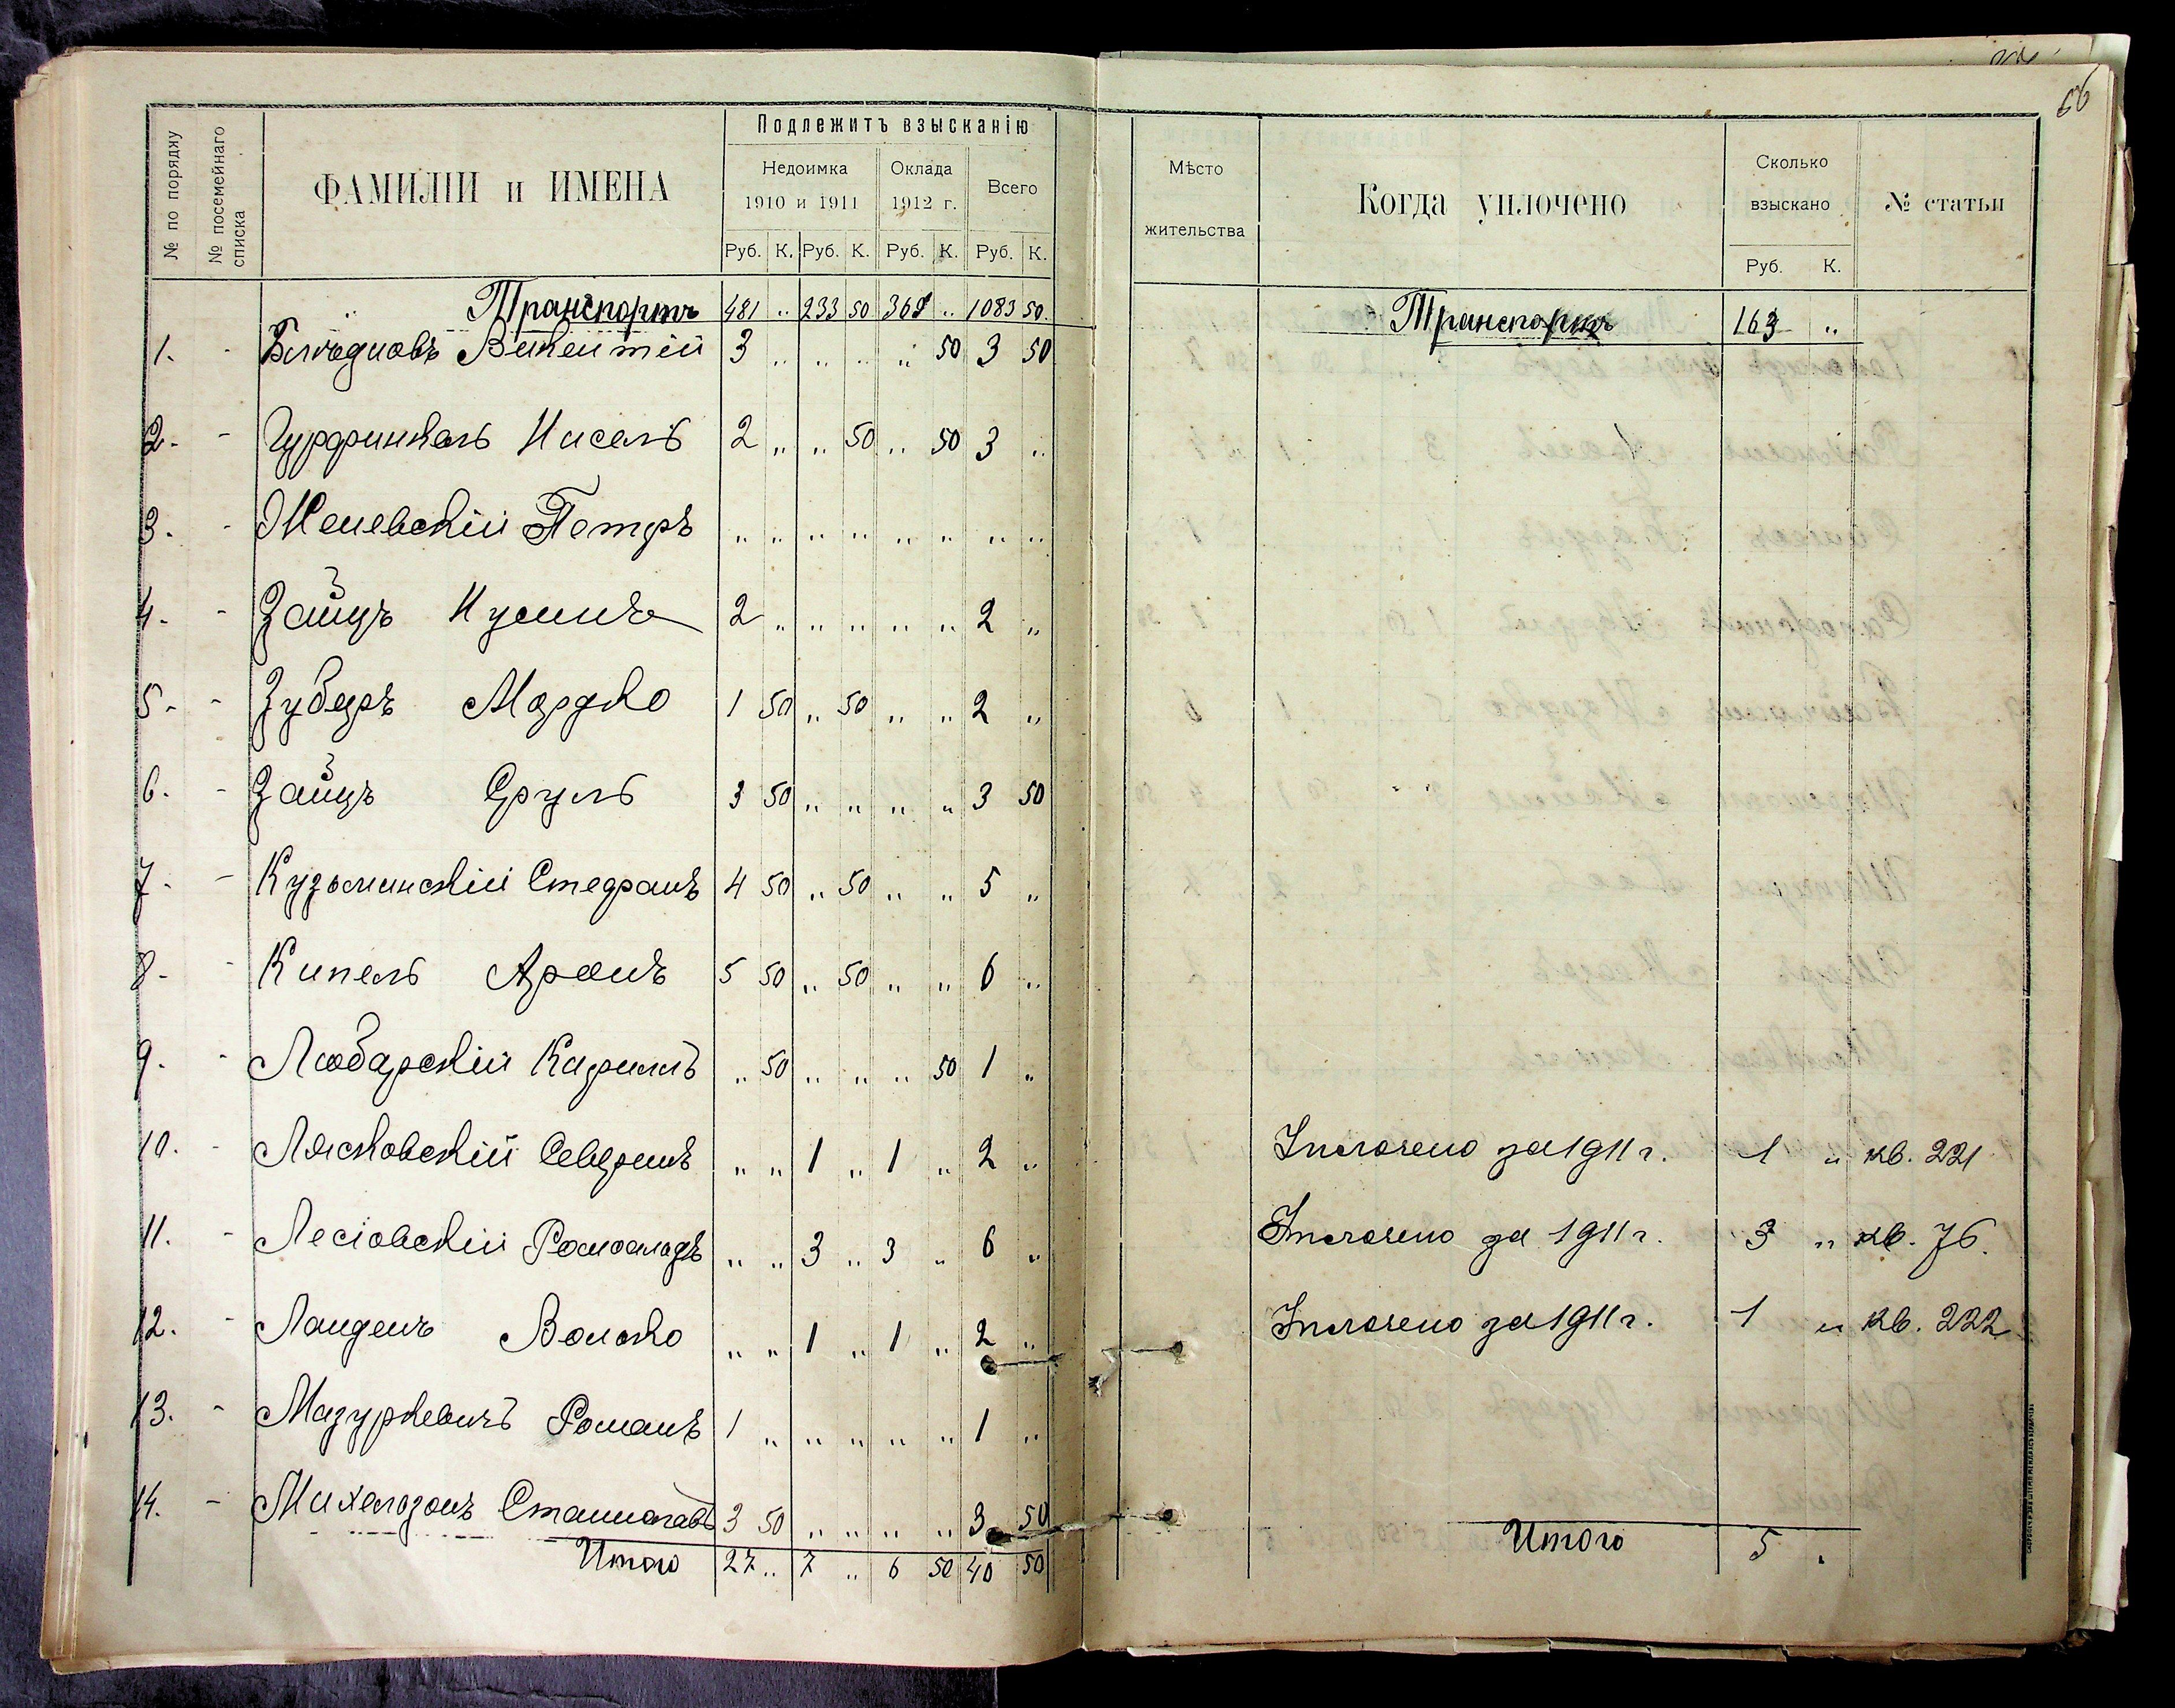 66
№ по порядку
№ посемейнаго списка
ФАМИЛІИ и ИМЕНА
Подлежитъ взысканію
Недоимка 1910 и 1911
Оклада 1912 г.
Всего
Руб. К. Руб. К. Руб. К. Руб. К.
Мѣсто жительства
Когда уплочено
Сколько взыскано
Руб. К.
№ статьи
Транспортъ 481 „ 233 50 369 „ 1083 50.
Транспортъ 163 „
1. - Викентій 3 „ „ „ „ 50 3 50
2. - Гурфинкель Нисель 2 „ „ 50 „ 50 3 „
3. - Женевскій Петръ „ „ „ „ „ „ „ „
4. - Зайцъ 2 „ „ „ „ „ 2 „
5. - Зуберъ Мордко 1 50 „ 50 „ „ 2 „
6. - Зайцъ Сруль 3 50 „ „ „ „ 3 50
7. - Кузьминскій Стефанъ 4 50 „ 50 „ „ 5 „
8. - Кипель Аронъ 5 50 „ 50 „ „ 6 „
9. - Любарскій Кирилъ „ 50 „ „ „ 50 1 „
10. - Лясковскій Северинъ „ „ 1 „ 1 „ 2 „ Уплочено за 1911 г. 1 „ кв. 221
11. - Лесіовскій Ромоальдъ „ „ 3 „ 3 „ 6 „ Уплочено за 1911 г. 3 „ кв. 76.
12. - Ланденъ Волько „ „ 1 „ 1 „ 2 „ Уплочено за 1911 г. 1 „ кв. 222
13. - Мазуркевичъ Романъ 1 „ „ „ „ „ 1 „
14. - Михельзонъ Станиславъ 3 50 „ „ „ „ 3 50
Итого 27 „ 7 „ 6 50 40 50
Итого 5 „